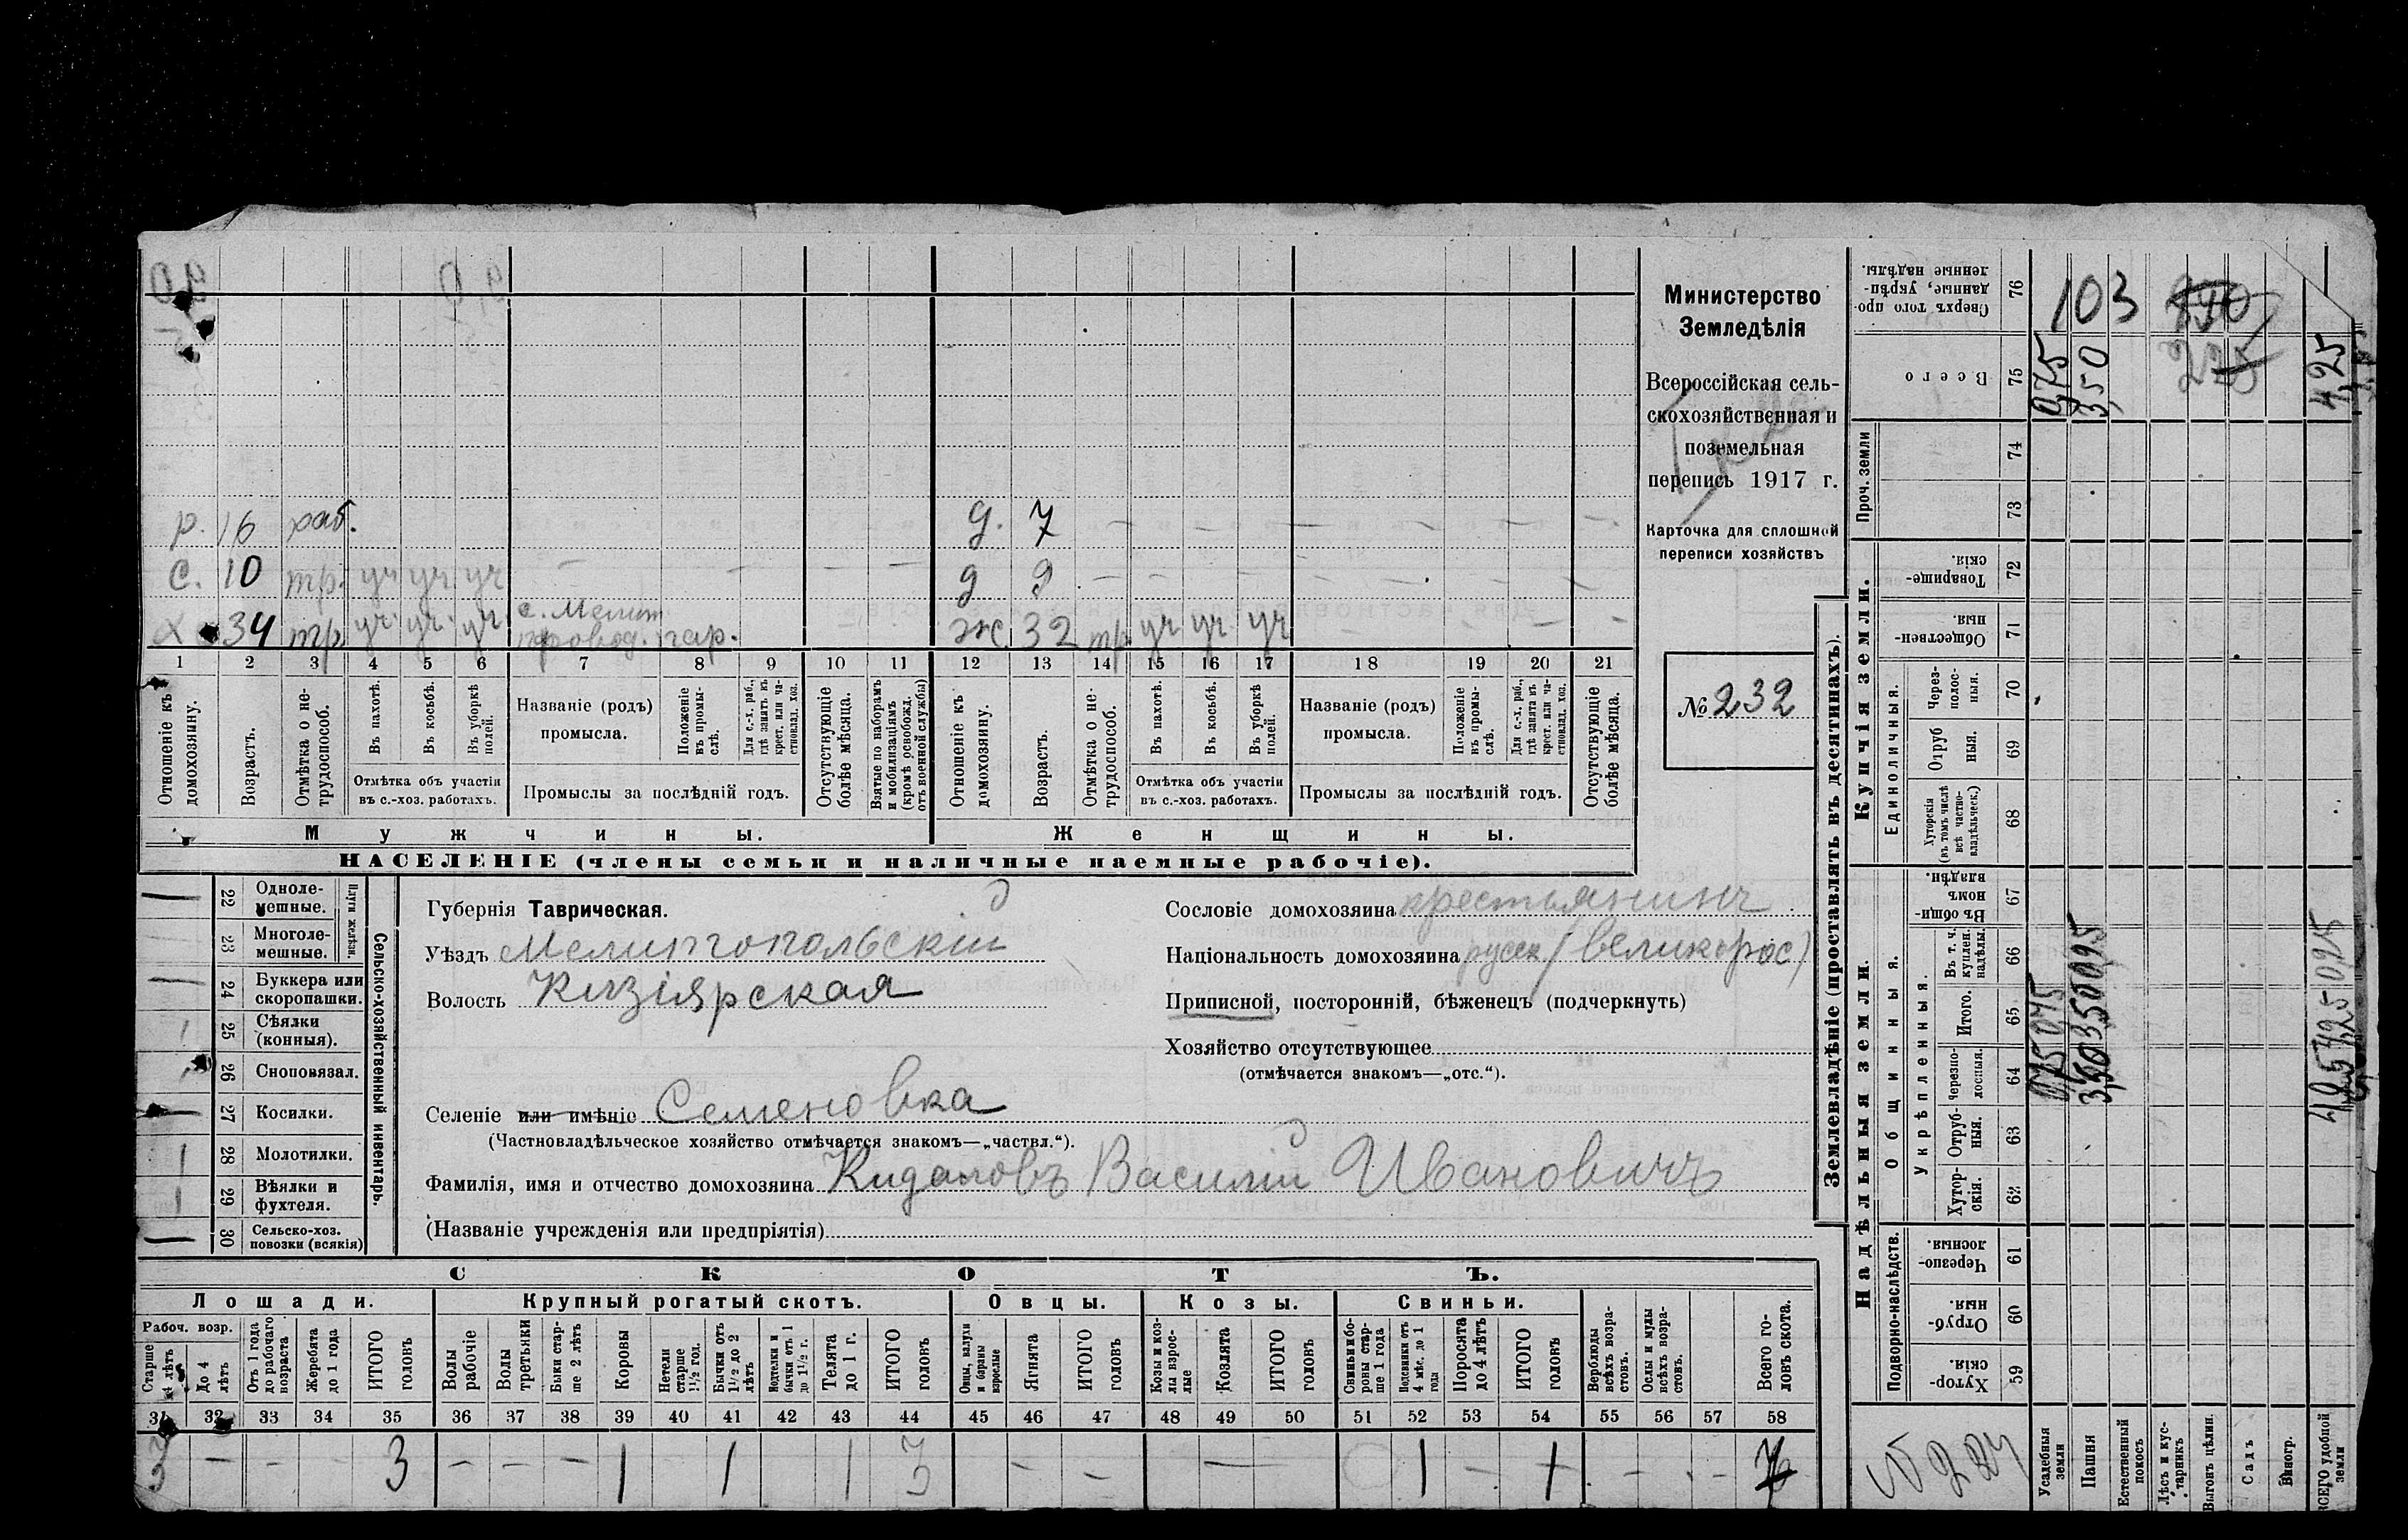 Министерство
Земледѣлія
Всероссійская сель-
скохозяйственная и
поземельная
перепись 1917 г.
Карточка для сплошной
переписи хозяйствъ
№ 232
р. 16 раб.
д. 7
с. 10 тр. уч уч уч
д 9
х 34 тр. уч. уч. уч. с. Мелит
гар.
ж 32 тр уч уч уч
1 2 3 4 5 6 7 8 9 10 11 12 13 14 15 16 17 18 19 20 21
Отношеніе къ домохозяину.
Возрастъ.
Отмѣтка о не-трудоспособ.
Въ пахотѣ.
Въ косьбѣ.
Въ уборкѣ полей.
Отмѣтка объ участіи
въ с.-хоз. работахъ.
Названіе (родъ)
промысла.
Положеніе въ промы-слѣ.
Для с.-х. раб., гдѣ занятъ въ крест. или ча-стновлад. хоз.
Промыслы за послѣдній годъ.
Отсутствующіе болѣе мѣсяца.
Взятые по наборамъ и мобилизаціямъ (кромѣ освобожд. отъ военной службы)
Отношеніе къ домохозяину.
Возрастъ.
Отмѣтка о не-трудоспособ.
Въ пахотѣ.
Въ косьбѣ.
Въ уборкѣ полей.
Отмѣтка объ участіи
въ с.-хоз. работахъ.
Названіе (родъ)
промысла.
Положеніе въ промы-слѣ.
Для с.-х. раб., гдѣ занята въ крест. или ча-стновлад. хоз.
Промыслы за послѣдній годъ.
Отсутствующіе болѣе мѣсяца.
Мужчины.
Женщины.
НАСЕЛЕНІЕ (члены семьи и наличные наемные рабочіе).
22 Одноле-мешные.
23 Многоле-мешные.
Плуги желѣзн.
24 Буккера или скоропашки.
25 Сѣялки (конныя).
26 Сноповязал.
27 Косилки.
28 Молотилки.
29 Вѣялки и фухтеля.
30 Сельско-хоз. повозки (всякія)
Сельско-хозяйственный инвентарь.
Губернія Таврическая.
Уѣздъ Мелитопольскій
Волость Кизіярская
Селеніе или имѣніе Семеновка
(Частновладѣльческое хозяйство отмѣчается знакомъ—„частвл.“).
Фамилія, имя и отчество домохозяина Кидаловъ Василій Ивановичъ
(Названіе учрежденія или предпріятія)
Сословіе домохозяина крестьянинъ
Національность домохозяина русск (великорос)
Приписной, посторонній, бѣженецъ (подчеркнуть)
Хозяйство отсутствующее
(отмѣчается знакомъ—„отс.“).
СКОТЪ.
Лошади. Крупный рогатый скотъ. Овцы. Козы. Свиньи.
Рабоч. возр.
Старше 4 лѣтъ
До 4 лѣтъ
Отъ 1 года до рабочаго возраста
Жеребята до 1 года
ИТОГО головъ
Волы рабочіе
Волы третьяки
Быки стар-ше 2 лѣтъ
Коровы
Нетели старше 1 1/2 год.
Бычки отъ 1 1/2 до 2 лѣтъ
Подтелки и бычки отъ 1 до 1 1/2 г.
Телята до 1 г.
ИТОГО головъ
Овцы, валухи и бараны взрослые
Ягнята
ИТОГО головъ
Козы и коз-лы взрос-лые
Козлята
ИТОГО головъ
Свиньи и бо-ровы стар-ше 1 года
Подсвинки отъ 4 мѣс. до 1 года
Поросята до 4 лѣтъ
ИТОГО головъ
Верблюды всѣхъ возра-стовъ.
Ослы и мулы всѣхъ возра-стовъ.
Всего го-ловъ скота.
31 32 33 34 35 36 37 38 39 40 41 42 43 44 45 46 47 48 49 50 51 52 53 54 55 56 57 58
3 – – – 3 – – – 1 1 1 3 – – — 1 – 1 – – 7
Землевладѣніе (проставлять въ десятинахъ).
Купчія земли.
Надѣльныя земли.
Сверхъ того про-данные, укрѣп-ленные надѣлы. 76
Всего 75
Проч. земли 74 73
Товарище-скія. 72
Обществен-ныя. 71
Единоличныя.
Через-полос-ныя. 70
Отруб-ныя. 69
Хуторскія (въ томъ числѣ всѣ частно-владѣльческ.) 68
Общинныя.
Въ общи-номъ владѣн. 67
Укрѣпленныя.
Въ т. ч. куплен. надѣлы. 66
Итого. 65
Черезпо-лосныя. 64
Отруб-ныя. 63
Хутор-скія. 62
Подворно-наслѣдств.
Черезпо-лосныя. 61
Отруб-ныя. 60
Хутор-скія. 59
Усадебныя земли
Пашня
Естественный покосъ
Лѣсъ и кус-тарникъ
Выгонъ цѣлин.
Садъ
Виногр.
ВСЕГО удобной земли
103
0,75
3,50
225
4,25